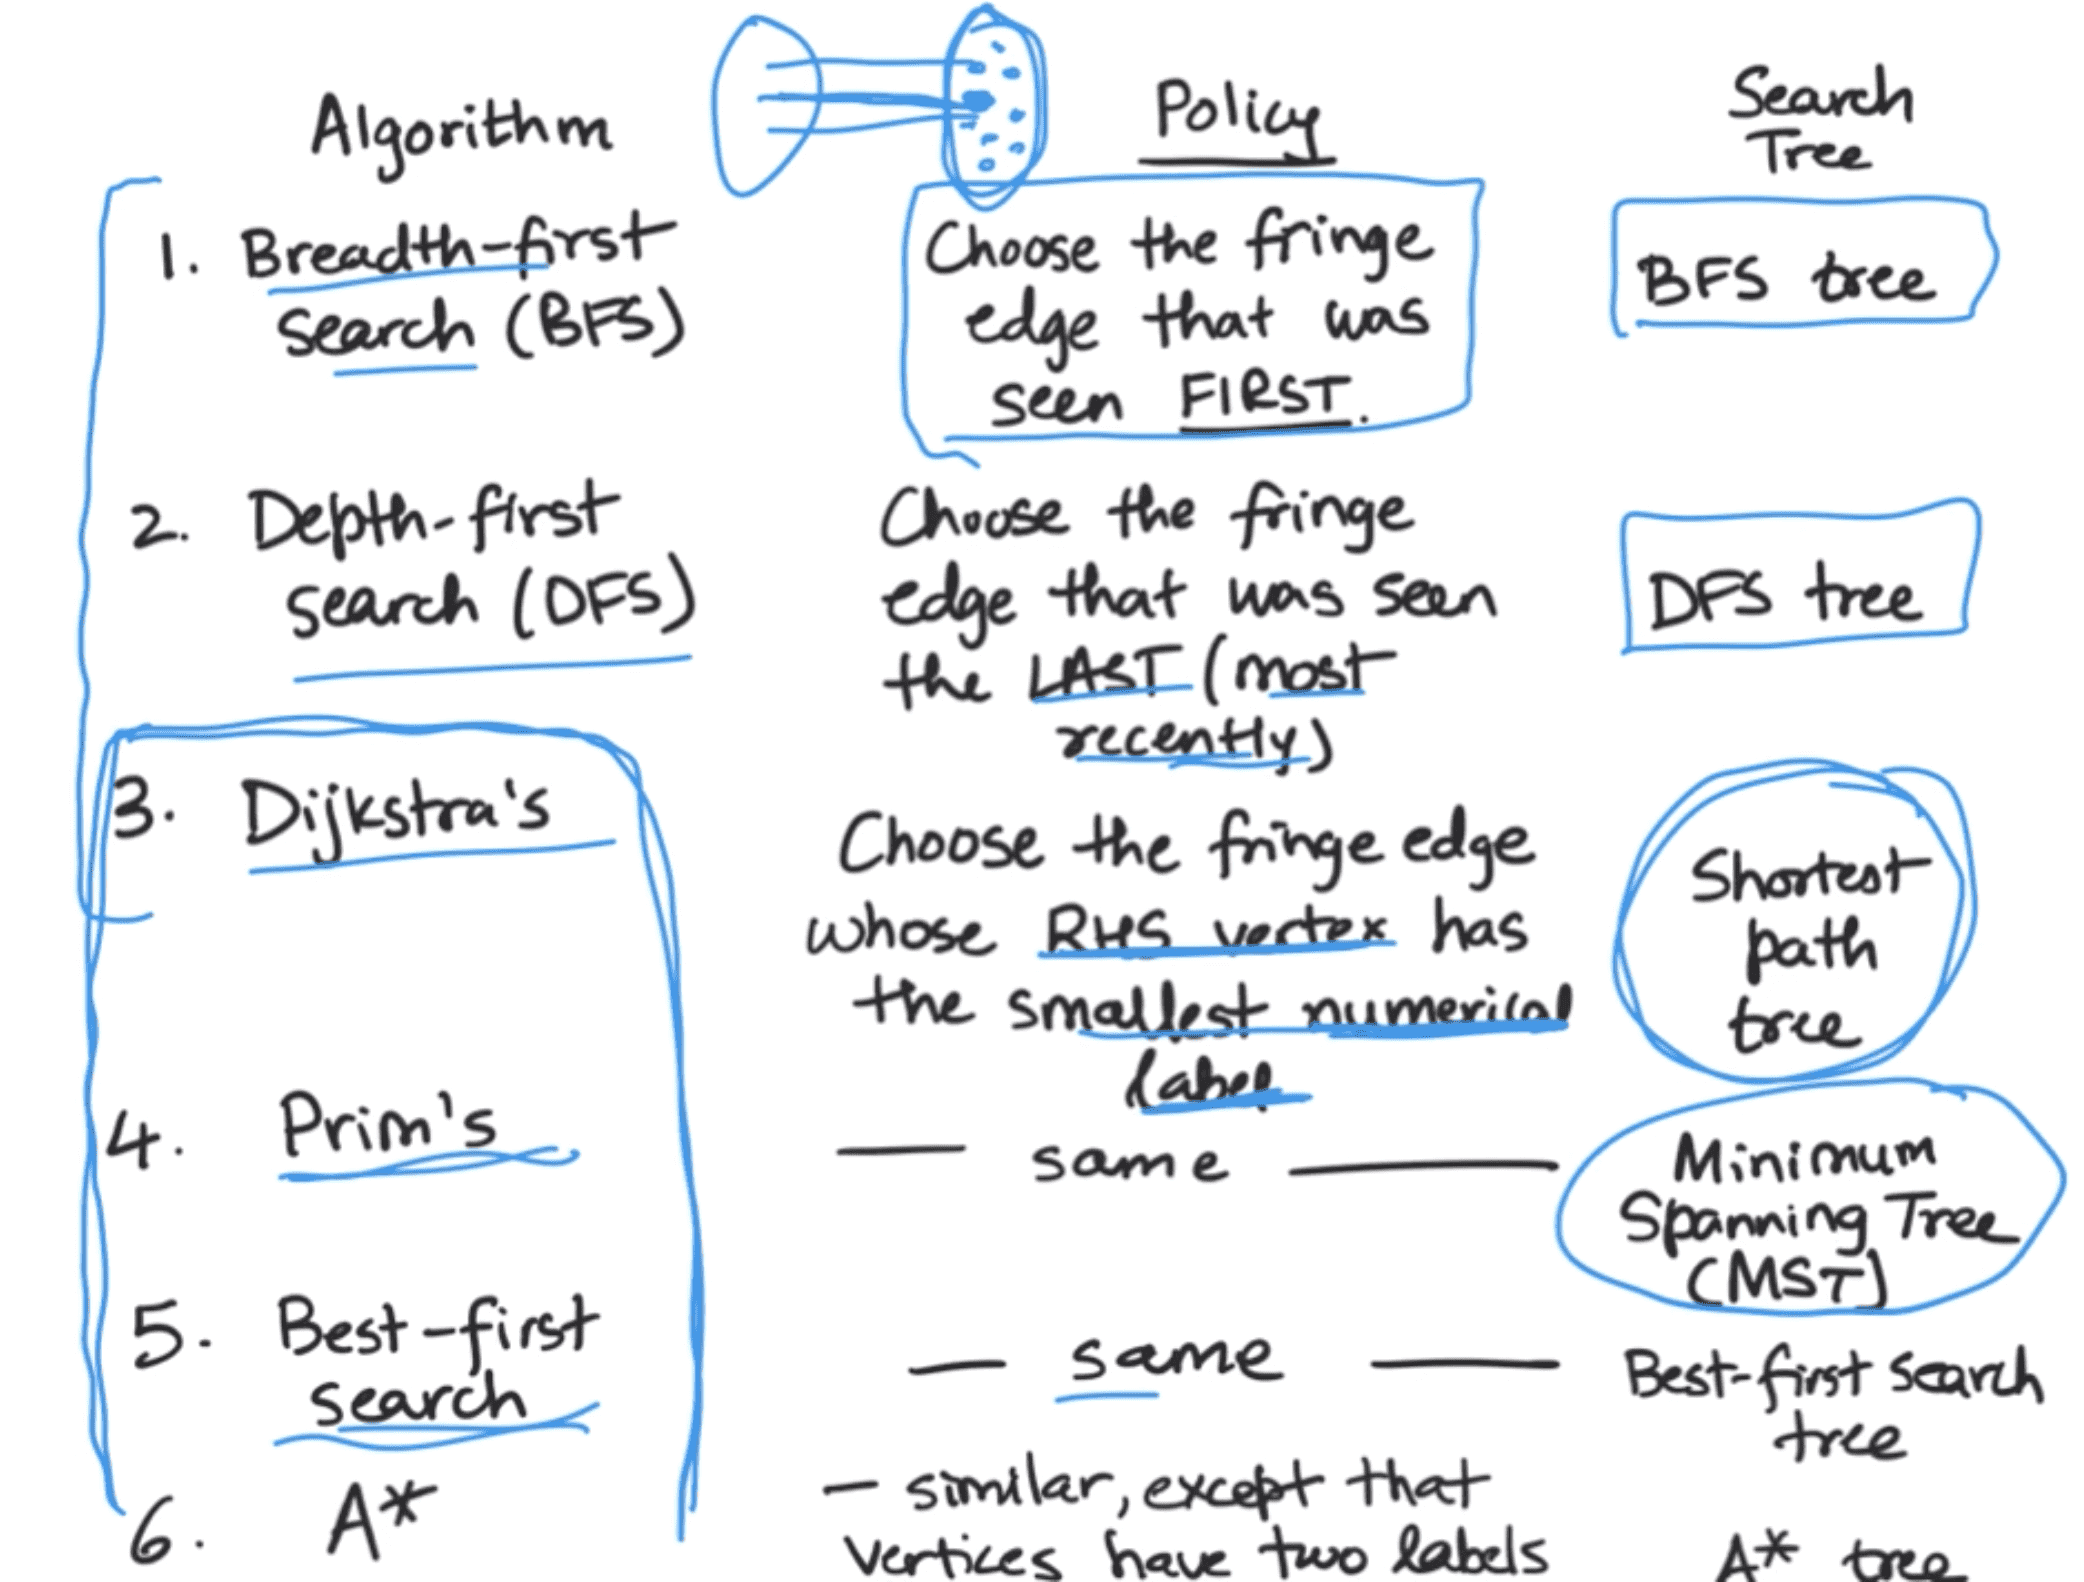 Algorithm
Policy
Search
Tree
1. Breadth-first
search (BFS)
Choose the fringe
edge that was
seen FIRST.
BFS tree
2. Depth-first
search (DFS)
Choose the fringe
edge that was seen
the LAST (most
recently)
DFS tree
3. Dijkstra's
Choose the fringe edge
whose RHS vertex has
the smallest numerical
label
Shortest
path
tree
4. Prim's
— same —
Minimum
Spanning Tree
(MST)
5. Best-first
search
— same —
Best-first search
tree
6. A*
— similar, except that
vertices have two labels
A* tree